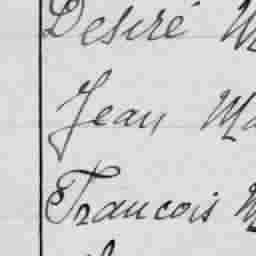 Desiré M
Jean Ma
Francois M